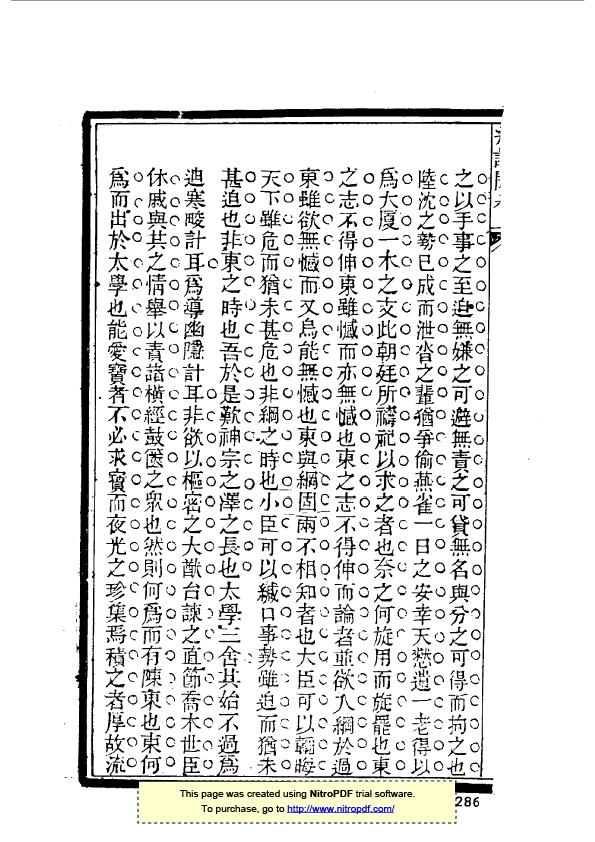 之以手事之至迫無嫌之可避無責之可貸無名與分之可得而拘之也
陸沈之勢已成而泄沓之輩猶爭偷燕雀一日之安幸天憖遺一老得以
為大厦一木之支此朝廷所禱祀以求之者也奈之何旋用而旋罷也東
之志不得伸東雖憾而亦無憾也東之志不得伸而論者並欲入綱於過
東雖欲無憾而又烏能無憾也東與綱固兩不相知者也大臣可以韜晦
天下雖危而猶未甚危也非綱之時也小臣可以緘口事勢雖迫而猶未
甚迫也非東之時也吾於是歎神宗之澤之長也太學三舍其始不過為
迪寒畯計耳為導幽隱計耳非欲以樞密之大猷台諫之直節喬木世臣
休戚與共之情舉以責諸橫經鼓篋之眾也然則何為而有陳東也東何
為而出於太學也能愛寶者不必求寶而夜光之珍集焉積之者厚故流
This page was created using NitroPDF trial software.
To purchase, go to http://www.nitropdf.com/
286